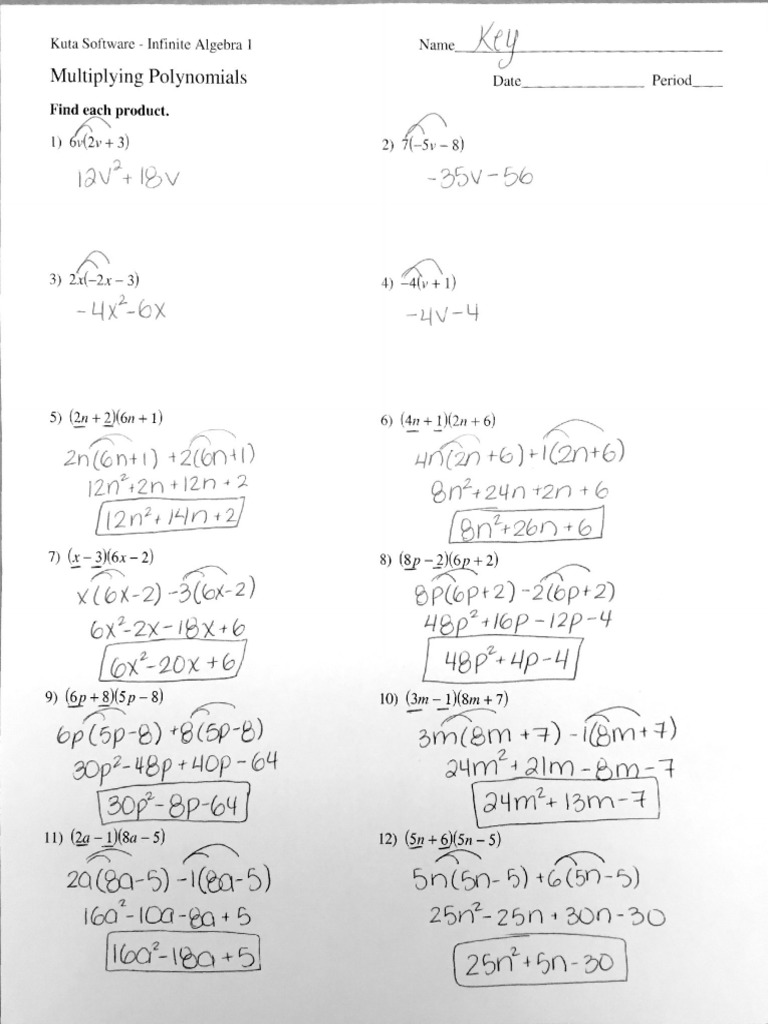 Kuta Software - Infinite Algebra 1
Name Key
Multiplying Polynomials
Date Period
Find each product.
1) 6v(2v + 3)
12v² + 18v
2) 7(−5v − 8)
-35v - 56
3) 2x(−2x − 3)
-4x² - 6x
4) −4(v + 1)
-4v - 4
5) (2n + 2)(6n + 1)
2n(6n+1) + 2(6n+1)
12n² + 2n + 12n + 2
12n² + 14n + 2
6) (4n + 1)(2n + 6)
4n(2n + 6) + 1(2n+6)
8n² + 24n + 2n + 6
8n² + 26n + 6
7) (x − 3)(6x − 2)
x(6x-2) - 3(6x-2)
6x² - 2x - 18x + 6
6x² - 20x + 6
8) (8p − 2)(6p + 2)
8p(6p+2) - 2(6p+2)
48p² + 16p - 12p - 4
48p² + 4p - 4
9) (6p + 8)(5p − 8)
6p(5p-8) + 8(5p-8)
30p² - 48p + 40p - 64
30p² - 8p - 64
10) (3m − 1)(8m + 7)
3m(8m + 7) - 1(8m + 7)
24m² + 21m - 8m - 7
24m² + 13m - 7
11) (2a − 1)(8a − 5)
2a(8a-5) - 1(8a-5)
16a² - 10a - 8a + 5
16a² - 18a + 5
12) (5n + 6)(5n − 5)
5n(5n - 5) + 6(5n - 5)
25n² - 25n + 30n - 30
25n² + 5n - 30